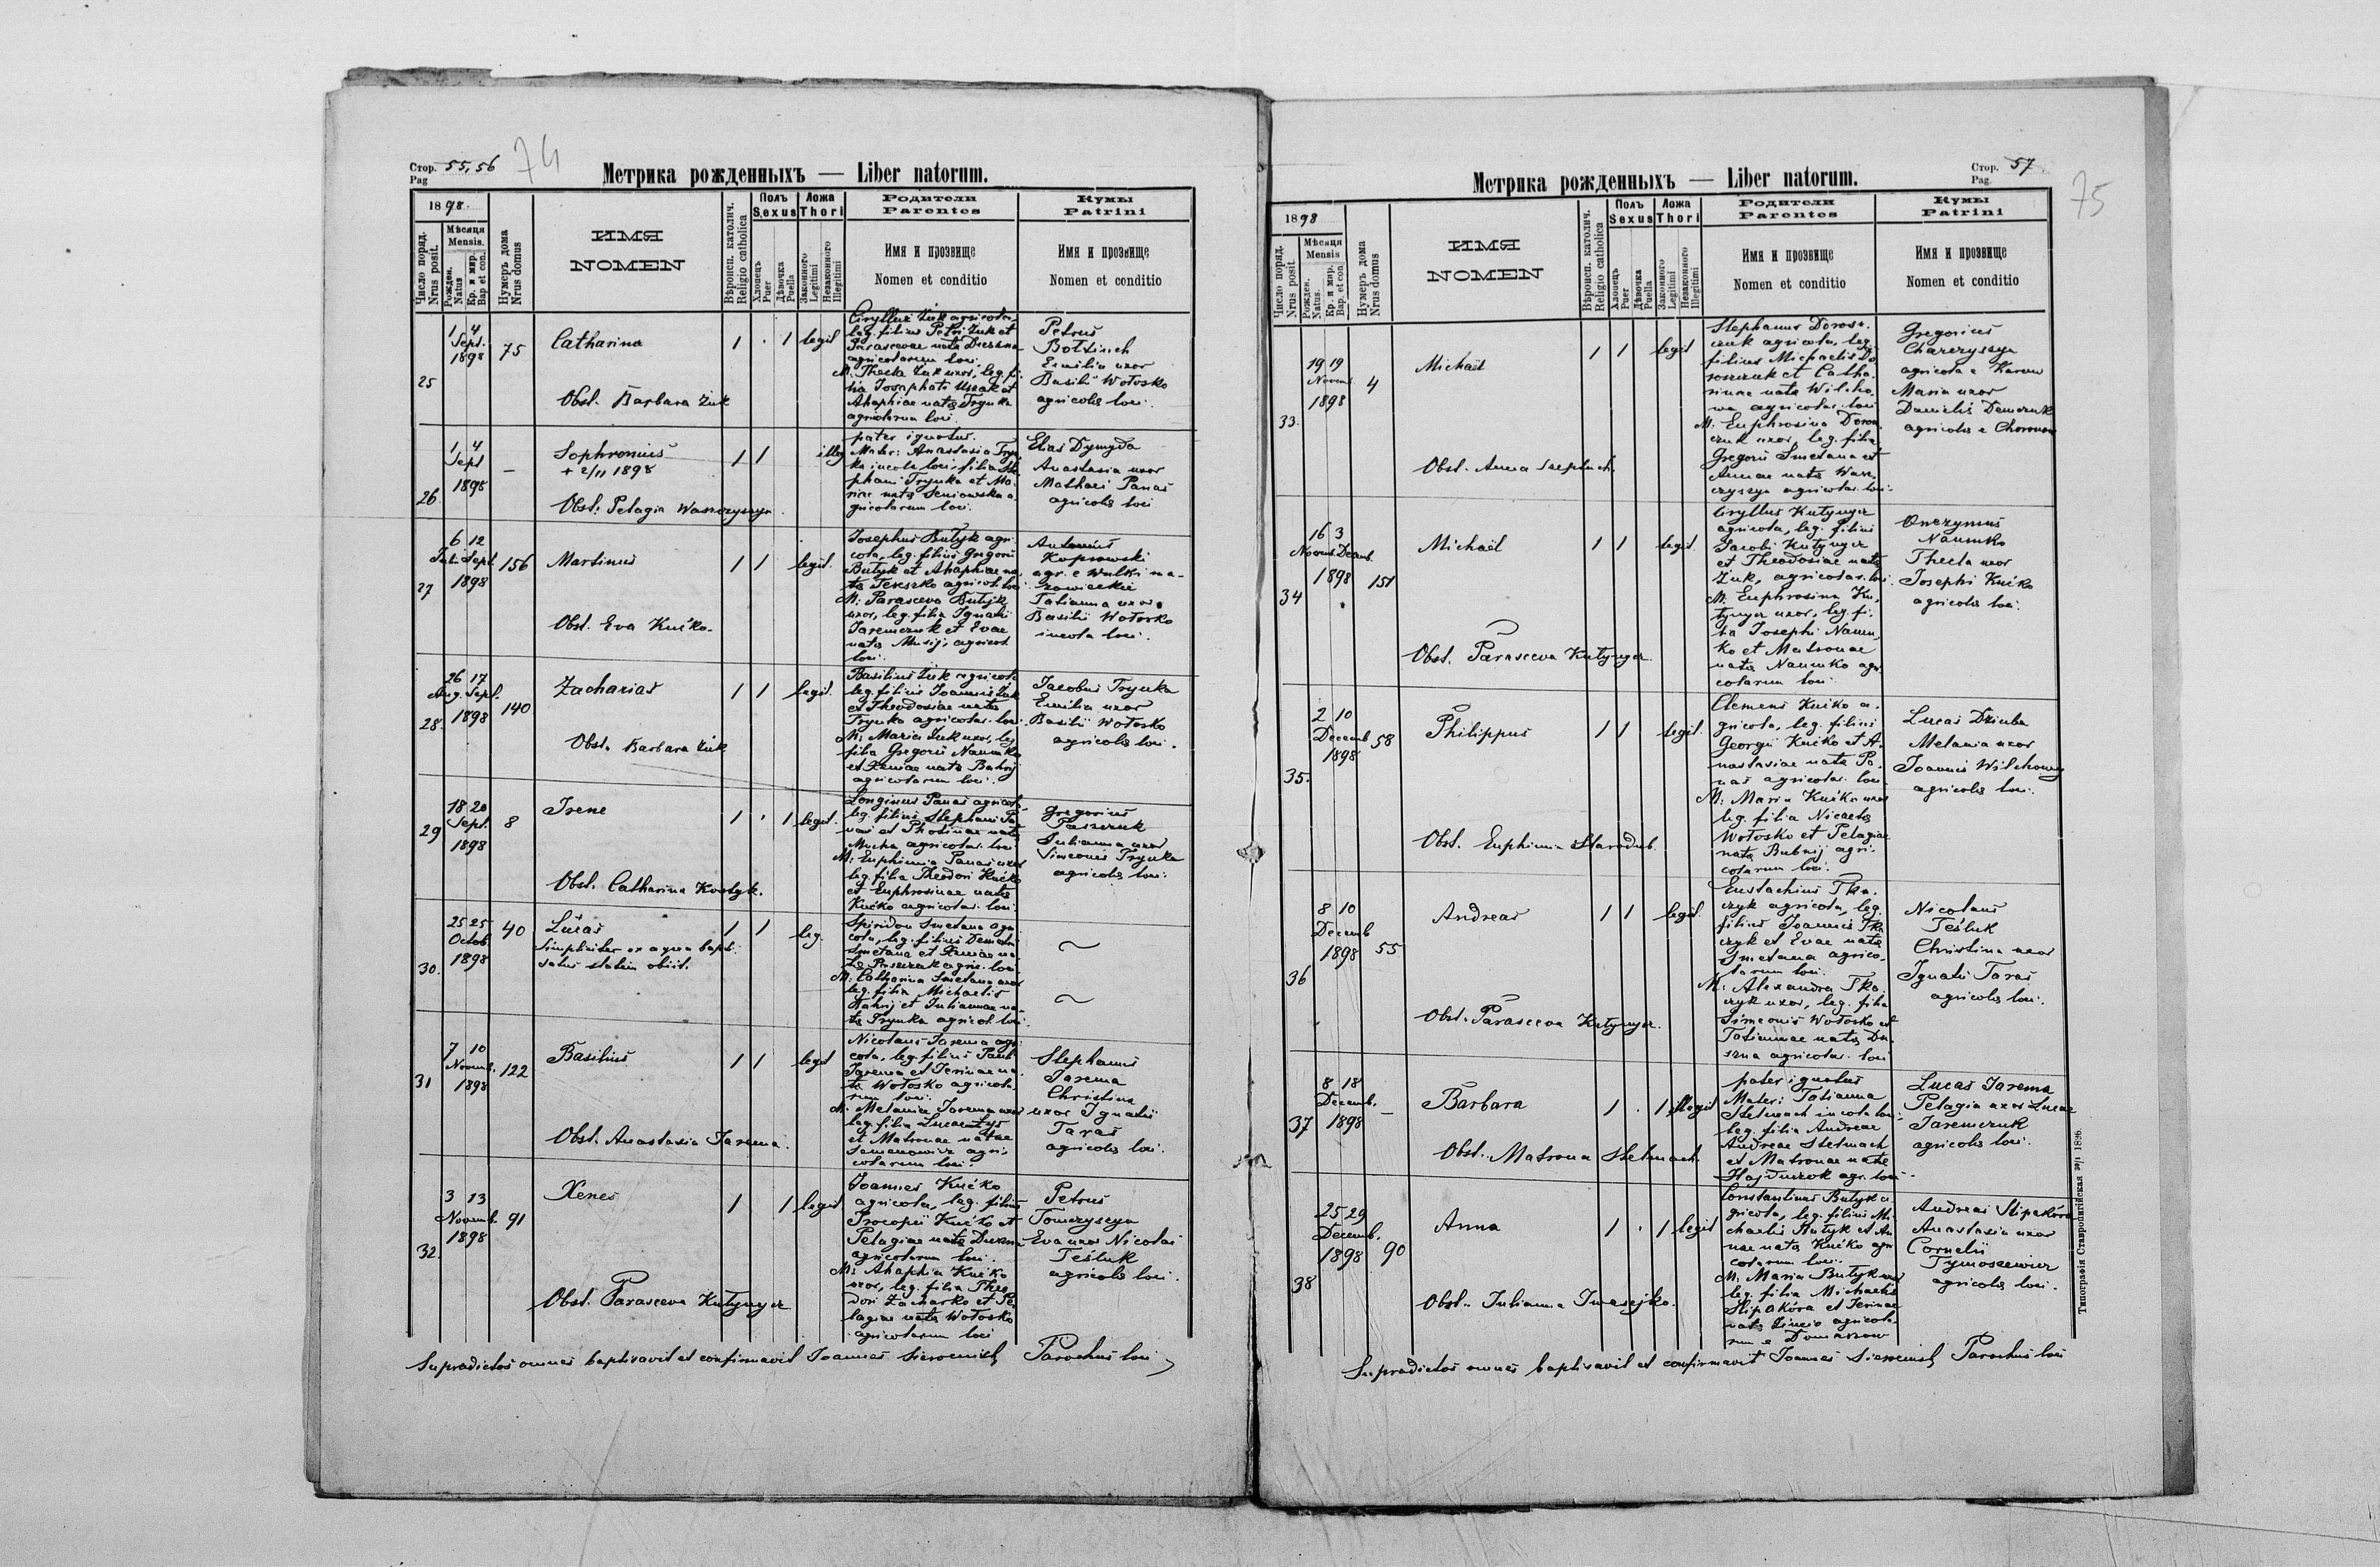 Стор. 55,56
Pag
74
Метрика рожденныхъ — Liber natorum.
1898
Число поряд.
Nrus posit.
Мѣсяця
Mensis.
Рожден.
Natus
Кр. и мир.
Bap et con.
Нумеръ дома
Nrus domus
ИМЯ
NOMEN
Вѣроисп. католич.
Religio catholica
Полъ
Sexus
Хлопець
Puer
Дѣвочка
Puella
Ложа
Thori
Законного
Legitimi
Незаконного
Illegitimi
Родители
Parentes
Имя и прозвище
Nomen et conditio
Кумы
Patrini
Имя и прозвище
Nomen et conditio
25
1 4
Sept.
1898
75
Catharina
Obst. Barbara Żuk
1 . 1 legit
Cyryllus Żuk agricola,
leg. filius Petri Żuk et
Parascevae nata
agricolarum loci.
M. Thecla Żuk uxor, leg. fi-
lia Josaphati et
Ahaphiae nata Trynka
agricolarum loci.
Petrus
Emilia uxor
Basilii Wołosko
agricolis loci.
26
1 4
Sept
1898
—
Sophronius
+ 2/11 1898
Obst. Pelagia Waszczyszyn
1 1 illeg
pater ignotus.
Mater: Anastasia Tryn-
ka incola loci, filia Ste-
phani Trynka et Ma-
riae nata a-
gricolarum loci.
Elias Dymyda
Anastasia uxor
Mathaei Panas
agricolis loci
27
6 12
Sept.
1898
156
Martinus
Obst. Eva Kućko
1 1 legit.
Josephus Butyk agri-
cola, leg. filius Gregorii
Butyk et Ahaphiae na-
ta agricol. loci
M: Parasceva Butyk
uxor, leg. filia Ignatii
Jaremczuk et Evae
nata agricol.
loci.
Antonius
Koprowski
agr. e Wulki ma-
zowieckie
Tatianna uxor
Basilii Wołosko
incola loci.
28.
26 17
Aug. Sept.
1898
140
Zacharias
Obst. Barbara Żuk
1 1 legit.
Basilius Żuk agricola
leg. filius Joannis Żuk
et Theodosiae nata
Trynka agricolar. loci
M: Maria Żuk uxor, leg
filia Gregorii Naumko
et Xeniae nata Bahrij
agricolarum loci.
Jacobus Trynka
Emilia uxor
Basilii Wołosko
agricolis loci.
29
18 20
Sept.
1898
8
Irene
Obst. Catharina Kostyk.
1 . 1 legit.
Longinus Panas agricola
leg. filius Stephani Pa-
nas et Photinae nata
Mucha agricolar. loci
M: Euphimia Panas uxor
leg. filia Theodori Kućko
et Euphrosinae nata
Kućko agricolar. loci.
Gregorius
Paszczuk
Julianna uxor
Simeonis Trynka
agricolis loci.
30.
25 25
Octob
1898
40
Lucas
Simpliciter ex aqua bapti-
satus statim obiit.
1 1 leg.
Spiridon Smetana agri-
cola, leg. filius Demetrii
Smetana et Xeniae na-
ta agric. loci
M: Catharina Smetana uxor
leg. filia Michaelis
Bahrij et Juliannae na-
ta Trynka agricol. loci.
31
7 10
Novemb.
1898
122
Basilius
Obst. Anastasia Jarema.
1 1 legit
Nicolaus Jarema agri-
cola, leg. filius Pauli
Jarema et Irinae na-
ta Wołosko agricola-
rum loci.
M: Melania Jarema uxor
leg. filia Lucae
et Matronae natae
Semenowicz agri-
colarum loci.
Stephanus
Jarema
Christina
uxor Ignatii
Taras
agricolis loci.
32.
3 13
Novemb.
1898
91
Xenes
Obst. Parasceva Kutynycz
1 1 legit
Joannes Kućko
agricola, leg. filius
Procopii Kućko et
Pelagiae nata
agricolarum loci.
M: Ahaphia Kućko
uxor, leg. filia Theo-
dori Zacharko et Pe-
lagiae nata Wołosko
agricolarum loci
Petrus
Tomczyszyn
Eva uxor Nicolai
Teśluk
agricolis loci.
Supradictos omnes baptisavit et confirmavit Joannes Parochus loci
Метрика рожденныхъ — Liber natorum.
Стор. 57
Pag.
75
1898
Число поряд.
Nrus posit
Мѣсяця
Mensis
Рожден.
Natus.
Кр. и мир.
Bap. et con
Нумеръ дома
Nrus domus
ИМЯ
NOMEN
Вѣроисп. католич.
Religio catholica
Полъ
Sexus
Хлопець
Puer
Дѣвочка
Puella
Ложа
Thori
Законного
Legitimi
Незаконного
Illegitimi
Родители
Parentes
Имя и прозвище
Nomen et conditio
Кумы
Patrini
Имя и прозвище
Nomen et conditio
33.
19 19
Novem.
1898
4
Michael
Obst. Anna
1 1 legit
Stephanus Dorosz-
czuk agricola, leg.
filius Michaelis Do-
roszczuk et Catha-
rinae nata Wilcho-
wa agricolar. loci
M. Euphrosina Dorosz-
czuk uxor, leg. filia
Gregorii Smetana et
Annae nata Wasz-
czyszyn agricolar. loci.
Gregorius
Charczyszyn
agricola e Karow
Maria uxor
Danielis Demczuk
agricolis e Chorow
34
16 3
Novemb. Decemb.
1898
151
Michael
Obst. Parasceva Kutynycz.
1 1 legit.
Cyryllus Kutynycz
agricola, leg. filius
Jacobi Kutynycz
et Theodosiae nata
Żuk, agricolar. loci.
M. Euphrosina Ku-
tynycz uxor, leg. fi-
lia Josephi Naum-
ko et Matronae
nata Naumko agri-
colarum loci.
Onezymus
Naumko
Thecla uxor
Josephi Kućko
agricolis loci.
35.
2 10
Decemb
1898
58
Philippus
Obst. Euphimia Starodub.
1 1 legit.
Clemens Kućko a-
gricola, leg. filius
Georgii Kućko et A-
nastasiae nata Pa-
nas agricolar. loci
M: Maria Kućko uxor
leg. filia Nicetis
Wołosko et Pelagiae
nata Bubnij agri-
colarum loci.
Lucas Dziuba
Melania uxor
Joannis Wilchowy
agricolis loci.
36
8 10
Decemb
1898
55
Andreas
Obst. Parasceva Kutynycz.
1 1 legit.
Eustachius Tka-
czyk agricola, leg.
filius Joannis Tka-
czyk et Evae nata
Smetana agrico-
larum loci.
M: Alexandra Tka-
czyk uxor, leg. filia
Simeonis Wołosko et
Tatiannae nata Du-
szna agricolar. loci
Nicolaus
Teśluk
Christina uxor
Ignatii Taras
agricolis loci.
37
8 18
Decemb.
1898
—
Barbara
Obst. Matrona Stelmach
1 . 1 illegit
pater ignotus
Mater: Tatianna
Stelmach incola loci,
leg. filia Andreae
Andreae Stelmach
et Matronae nata
Hajduczok agr. loci.
Lucas Jarema
Pelagia uxor Lucae
Jaremczuk
agricolis loci.
38
25 29
Decemb.
1898
90
Anna
Obst. Julianna
1 . 1 legit
Constantinus Butyk a-
gricola, leg. filius Mi-
chaelis Butyk et An-
nae nata Kućko agri-
colarum loci.
M. Maria Butyk uxor
leg. filia Michaelis
Slipakóra et Irinae
nata agricola-
rum e Domaszow
Andreas Slipakóra
Anastasia uxor
Cornelii
Tymoszewicz
agricolis loci.
Supradictos omnes baptisavit et confirmavit Joannes Parochus loci
Типографія Ставропигійская 1896.